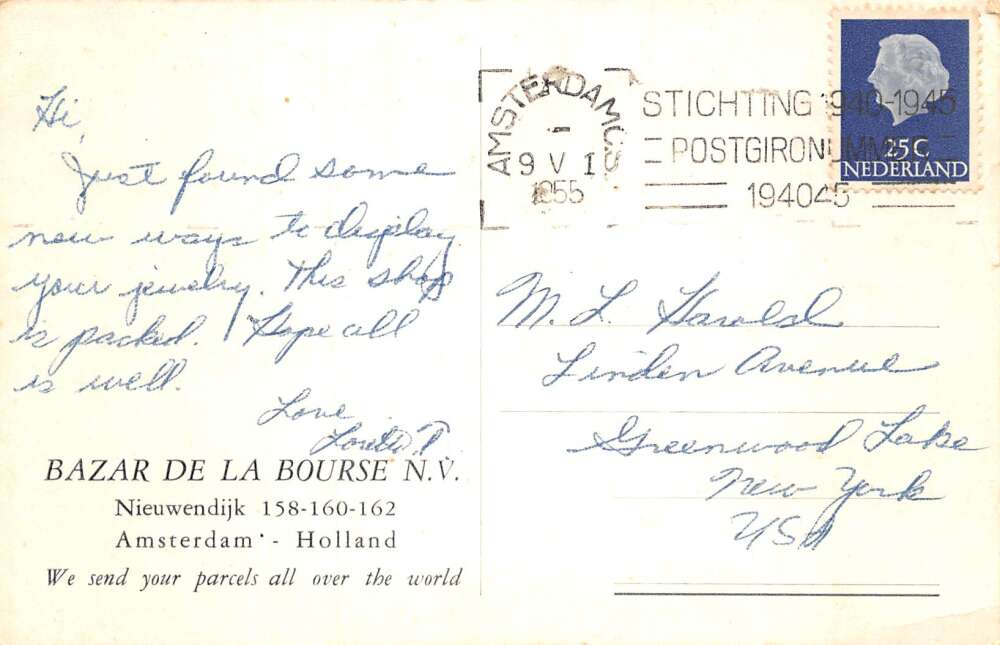 Hi,
Just found some
new ways to display
your jewelry. This shop
is packed. Hope all
is well.
Love
Loretta P.
BAZAR DE LA BOURSE N.V.
Nieuwendijk 158-160-162
Amsterdam - Holland
We send your parcels all over the world
AMSTERDAM C.S
9 V 1
1955
STICHTING 1940-1945
POSTGIRONUMMER
194045
25 C
NEDERLAND
M. L. Harold
Linden Avenue
Greenwood Lake
New York
USA